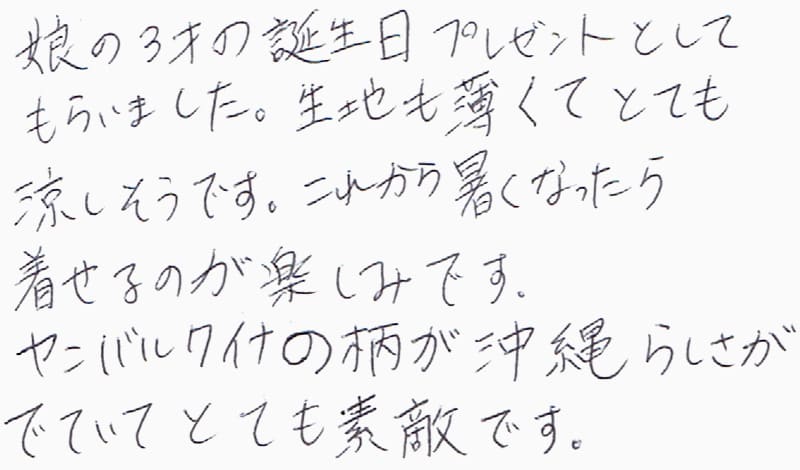 娘の3才の誕生日プレゼントとして
もらいました。生地も薄くてとても
涼しそうです。これから暑くなったら
着せるのが楽しみです。
ヤンバルクイナの柄が沖縄らしさが
でていてとても素敵です。